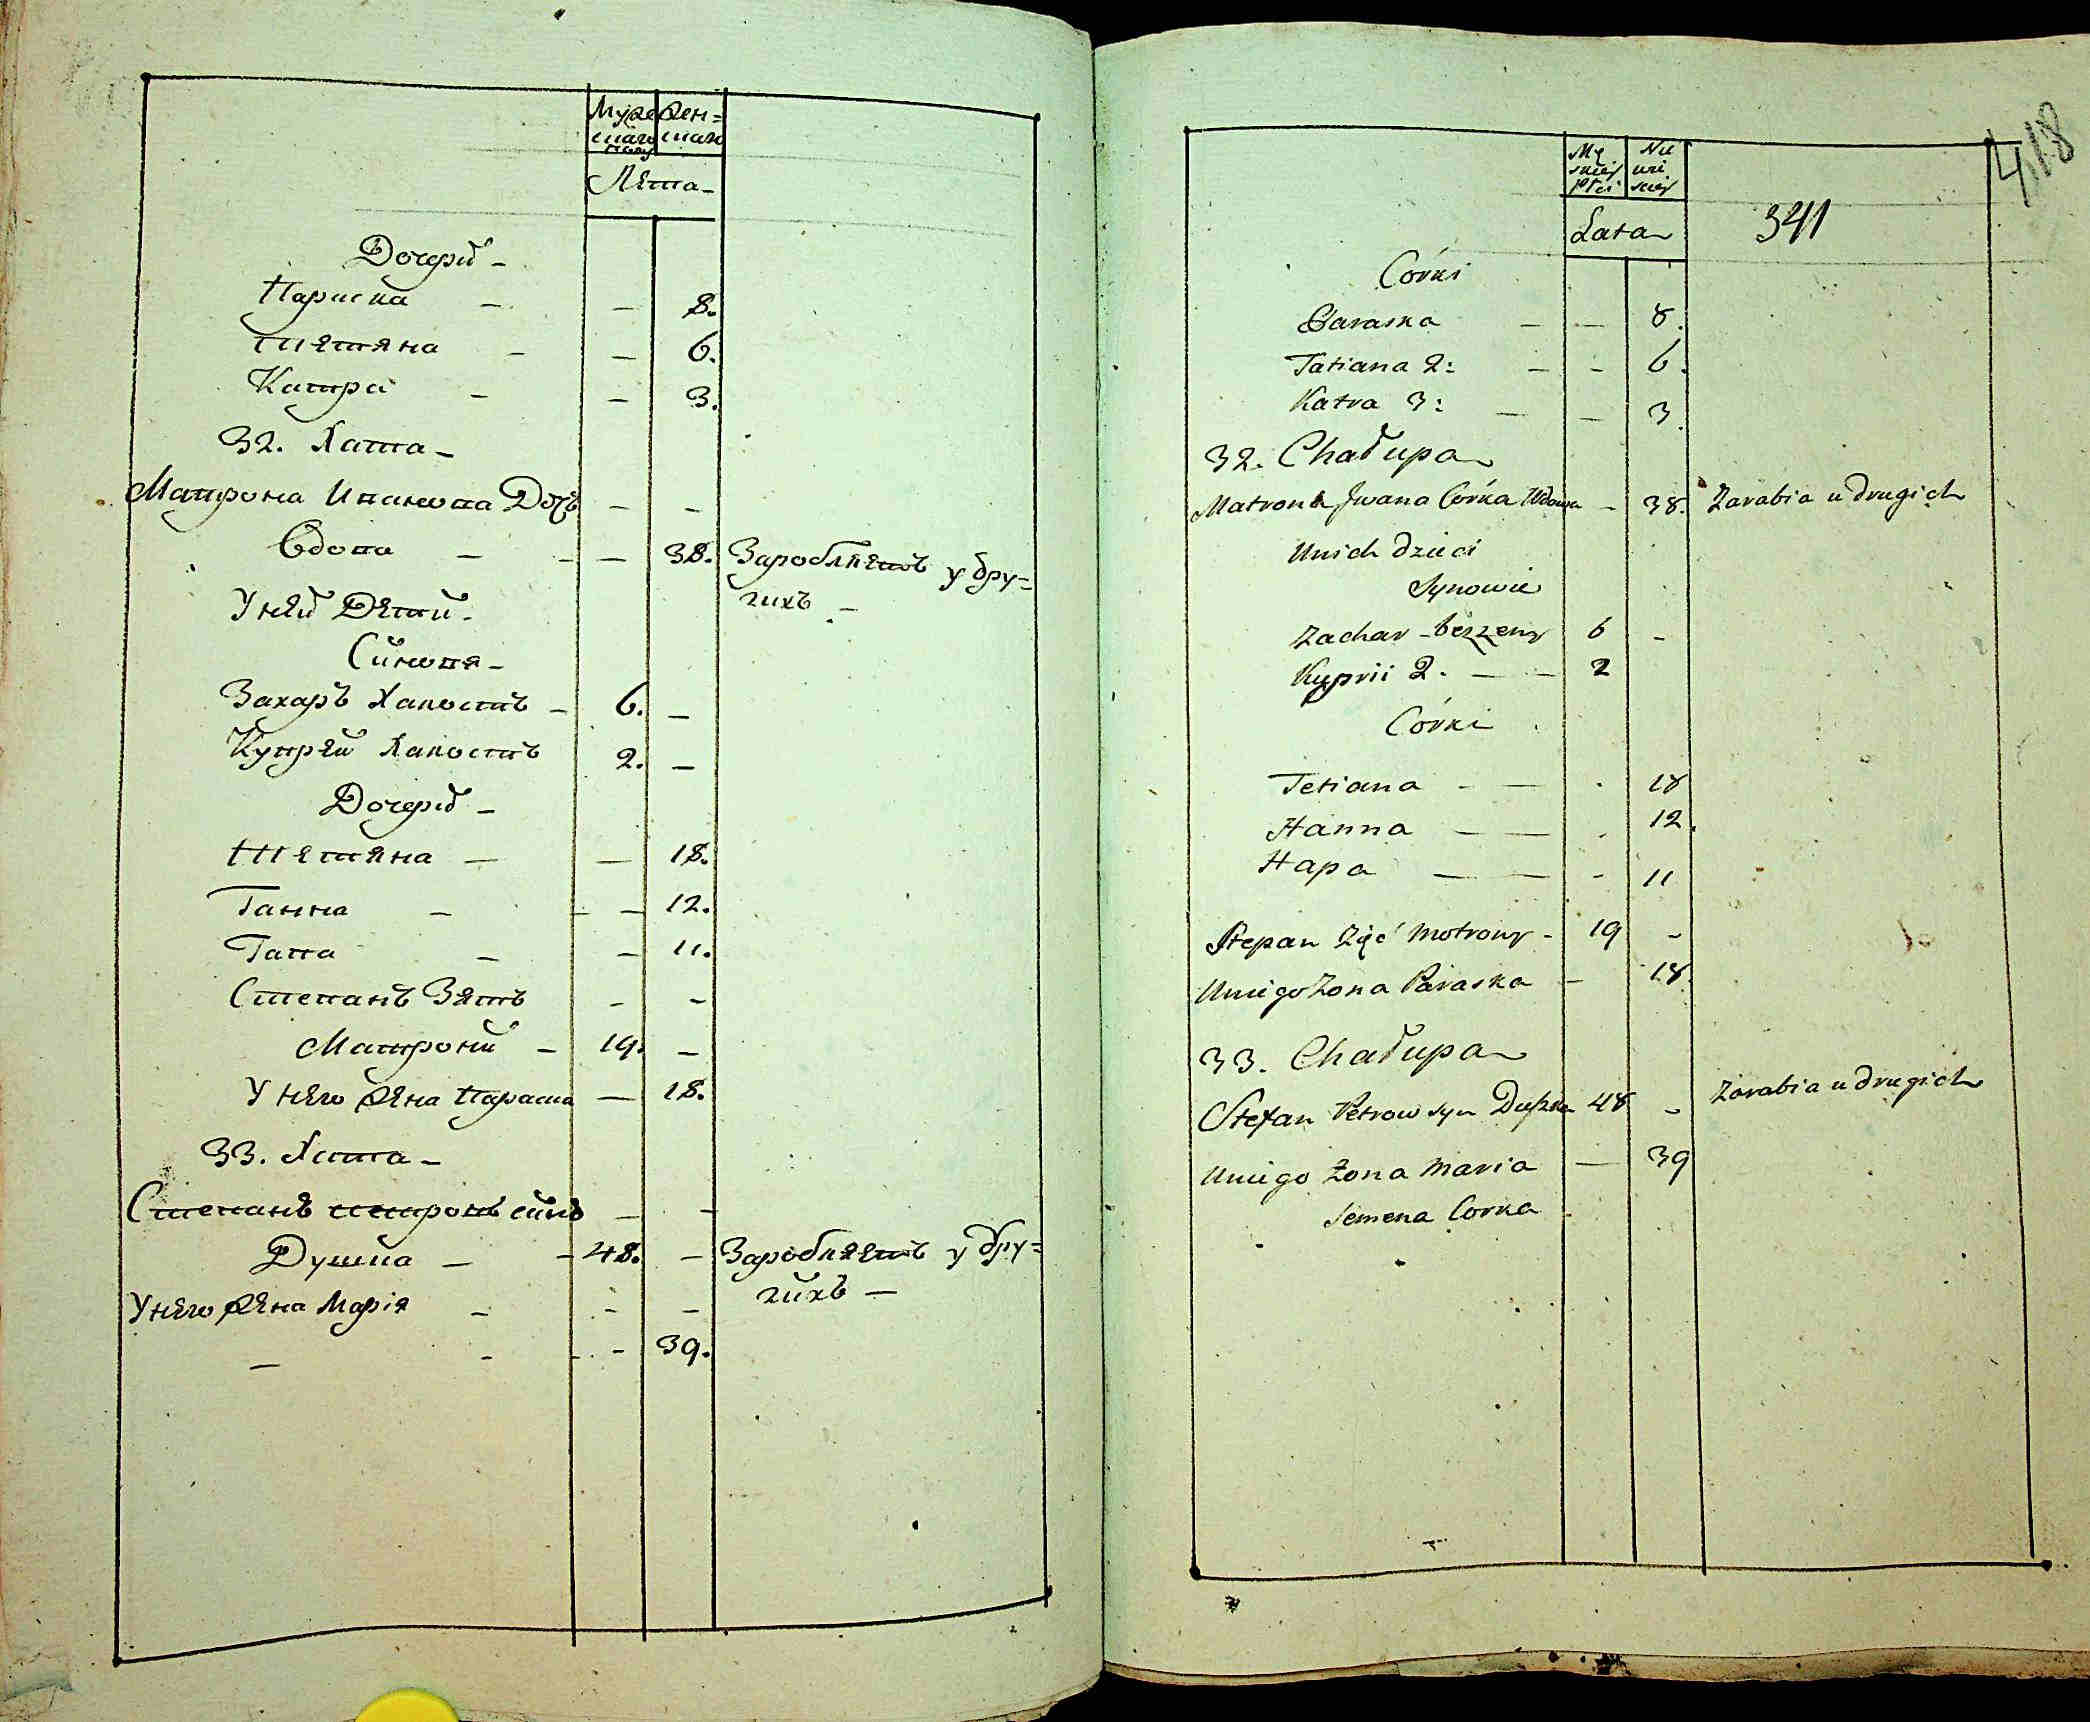 Муже
ска
полу
Жен=
ска
Лѣта
Дочерѣ
Параска — — 8.
Тѣтяна — — 6.
Катра — — 3.
32. Хата
Матрона Иванова Дочъ — —
Вдова — — — 38. Зароблѣетъ у дру=
гихъ —
У нѣй Дѣти.
Синовя
Захаръ Халостъ — 6. —
Купрѣй Халостъ 2. —
Дочерѣ —
Тѣтяна — — 18.
Ганна — — — 12.
Гапа — — 11.
Степанъ Зятъ — —
Матроны — 19. —
У нѣго Жѣна Параска — 18.
33. Хата
Степанъ Петровъ синъ — —
Душка — — 48. — Зароблѣетъ у дру=
гихъ —
У нѣго Жѣна Марія — — —
— — — — 39.
418
Mę
skiej
płci
Nie
wie
sciej
Lata
341
Córki
Paraska — — 8.
Tatiana 2: — — 6.
Katra 3: — — 3.
32. Chałupa
Matrona Jwana Córka Wdowa — 38. Zarabia u drugich
Unich dzieci
Synowie
Zachar – bezzeny 6 —
Kuprii 2. — — 2
Córki
Tetiana — — . 18
Hanna — — . 12.
Hapa — — - 11
Stepan Zięć Motrony - 19 -
Uniego Zona Paraska — 18.
33. Chałupa
Stefan Petrow syn Duszka 48 - Zarabia u drugich
Uniego Żona Maria — 39
Semena Corka